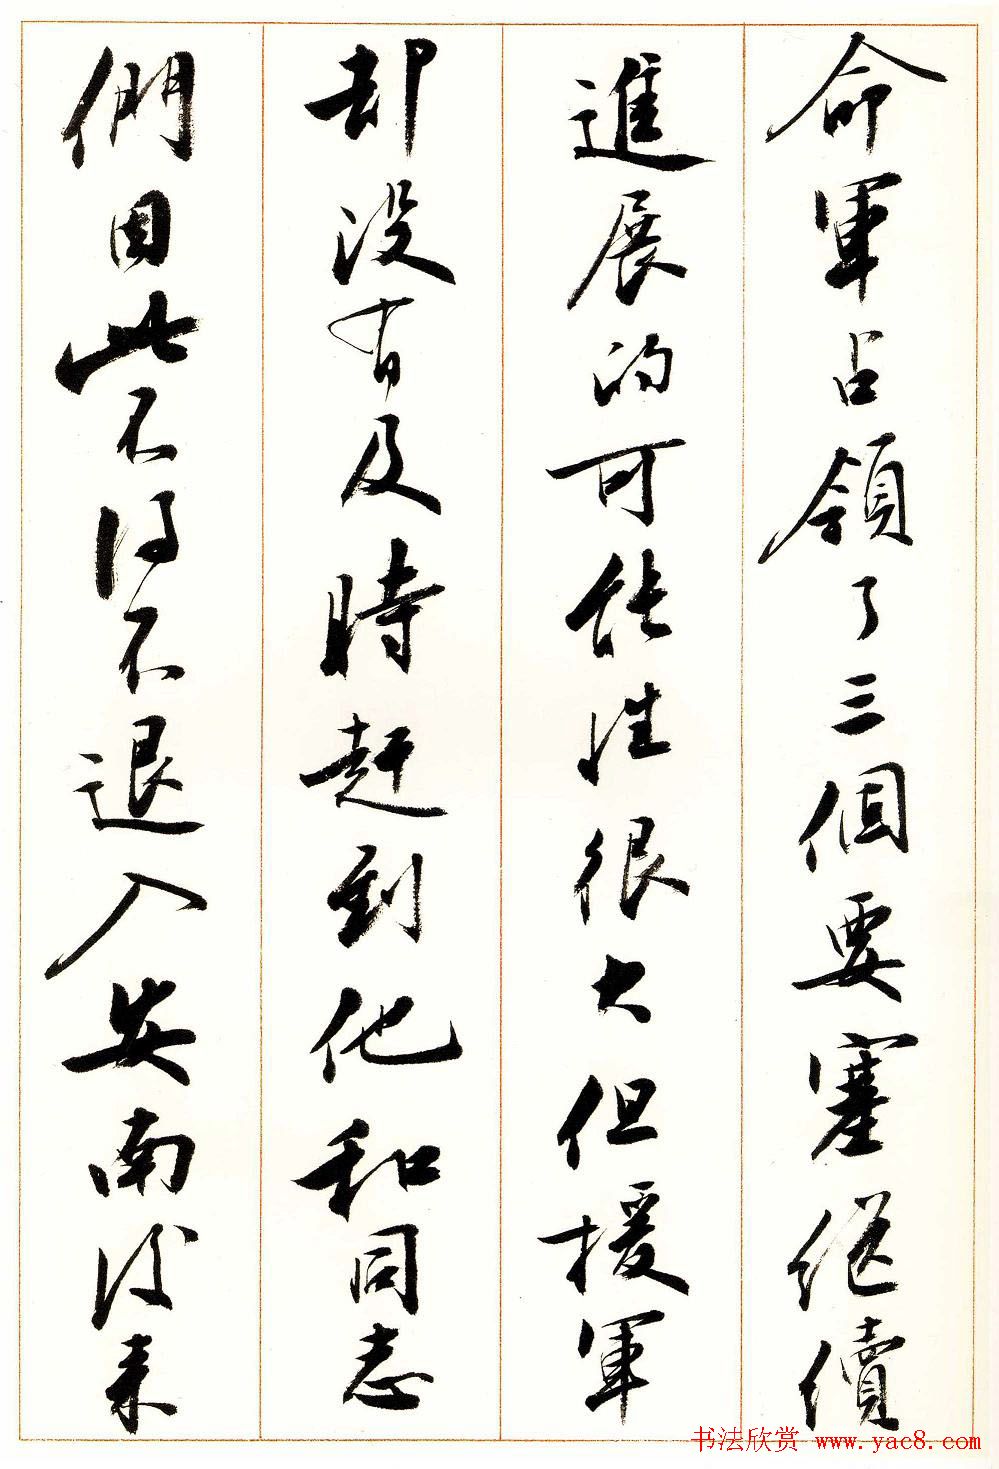 命軍占領了三個要塞继續
進展的可能性很大但援軍
却没有及時赶到他和同志
們因此不得不退入安南後来
书法欣赏 www.yac8.com